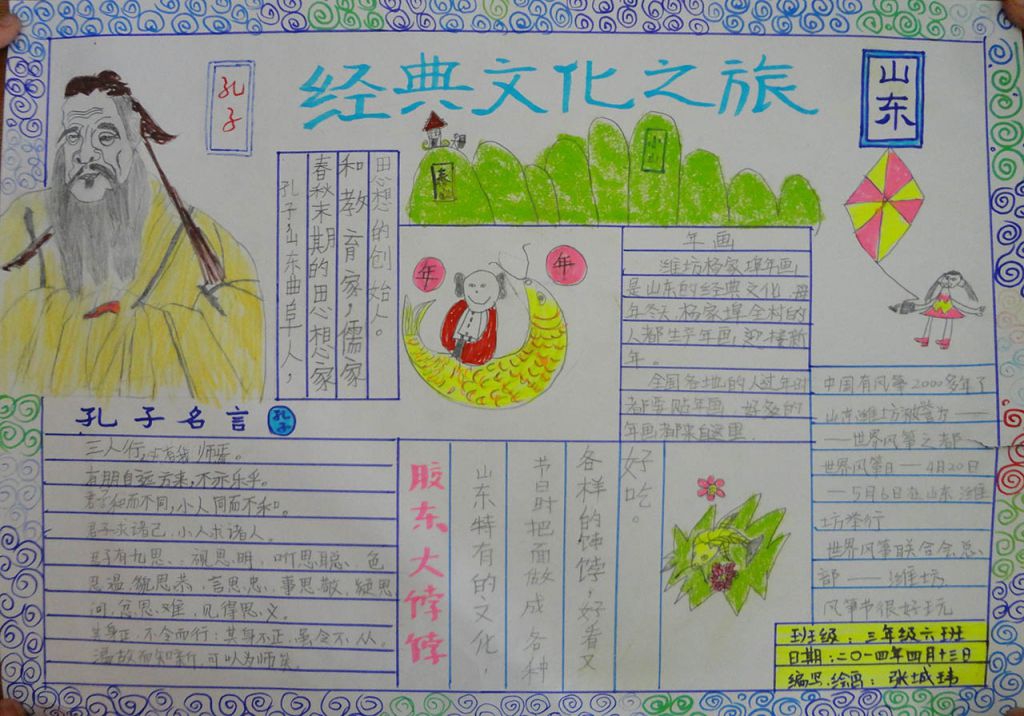 经典文化之旅
孔子
山东
孔子山东曲阜人，
春秋末期的思想家
和教育家，儒家
思想的创始人。
泰山
年
年
年画
潍坊杨家埠年画，
是山东的经典文化，每
年冬天，杨家埠全村的
人都生产年画，迎接新
年。
全国各地的人过年时
都要贴年画，好多的
年画都来自这里.
中国有风筝2000多年了
山东潍坊被誉为——
——世界风筝之都
世界风筝日——4月20日
—5月6日在山东潍
坊举行
世界风筝联合会总
部——潍坊.
风筝节很好玩
孔子名言
孔子
三人行，必有我师焉。
有朋自远方来，不亦乐乎。
君子和而不同，小人同而不和。
君子求诸己，小人求诸人。
君子有九思：视思明，听思聪，色
思温，貌思恭，言思忠，事思敬，疑思
问，忿思难，见得思义。
其身正，不令而行；其身不正，虽令不从。
温故而知新，可以为师矣。
胶东大饽饽
山东特有的文化，
节日时把面做成各种
各样的饽饽，好看又
好吃。
班级：三年级六班
日期：二〇一四年四月十三日
编写.绘画：张城玮